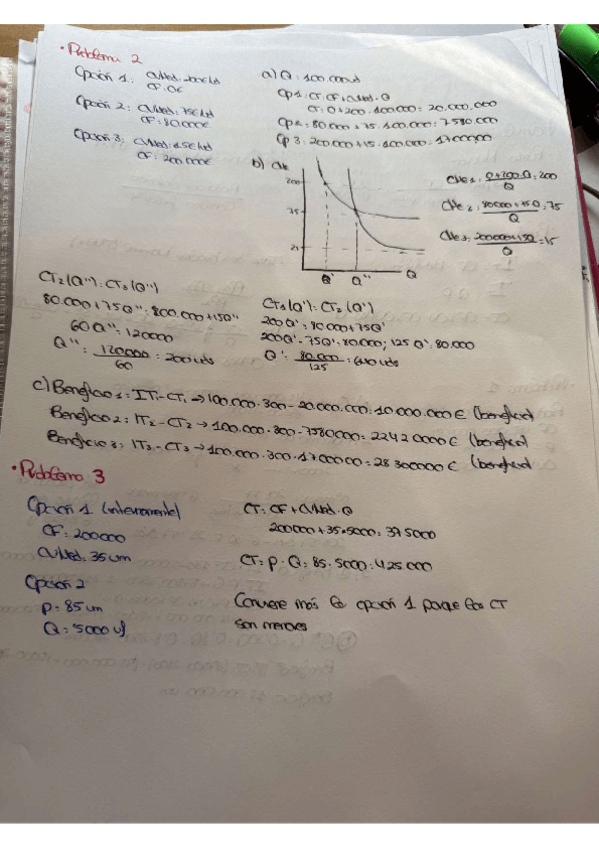 • Problema 2
Opción 1: CVMed: 200€/ud
CF: 0€
Opción 2: CVMed: 75€/ud
CF: 80.000€
Opción 3: CVMed: 15€/ud
CF: 200.000€
a) Q: 100.000ud
Op 1: CT: CF + CVMed · Q
CT: 0 + 200 · 100.000: 20.000.000
Op 2: 80.000 + 75 · 100.000: 7580.000
Op 3: 200.000 + 15 · 100.000: 1700000
b)
200
75
Q' Q'' Q
CMe 1: 0+200Q / Q : 200
CMe 2: : 75
CMe 3: : 15
CT2(Q''): CT3(Q'')
80.000 + 75Q'': 200.000 + 15Q''
60Q'': 120000
Q'': 120000 / 60 : 2000 uds
CT1(Q'): CT2(Q')
200Q': 80.000 + 75Q'
200Q' - 75Q': 80.000; 125Q': 80.000
Q': 80.000 / 125 : 640 uds
c) Beneficio 1: IT1 - CT1 → 100.000 · 300 - 20.000.000: 10.000.000€ (beneficio)
Beneficio 2: IT2 - CT2 → 100.000 · 300 - 7580000: 22420000€ (beneficio)
Beneficio 3: IT3 - CT3 → 100.000 · 300 · 1700000: 28300000€ (beneficio)
• Problema 3
Opción 1 (internamente)
CF: 200000
CVMed: 35um
Opción 2
P: 85um
Q: 5000 uf
CT: CF + CVMed · Q
200000 + 35 · 5000: 375000
CT: P · Q: 85 · 5000: 425000
Conviene más la opción 1 porque los CT
son menores